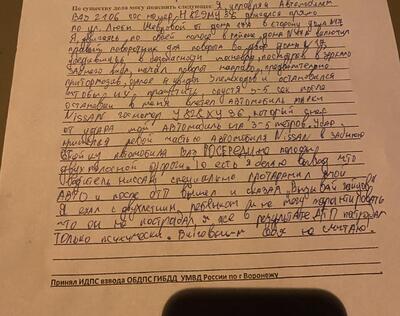 По существу дела могу пояснить следующее: Я управлял Автомобилем
ВАЗ 2106 гос номер двигался прямо
по ул. Любы Шевцовой от дома в сторону дома
Я двигаясь по своей полосе в районе дома включил
правый поворотник для поворота во двор дома
убедившись в безопасности манёвра посмотрев в зеркало
заднего вида, начал поворот направо, предварительно
притормозив, далее я увидел пешеходов и остановился
чтобы их пропустить спустя 3-5 сек после
остановки в меня влетел автомобиль марки
NISSAN гос номер который снёс
от удара мой Автомобиль на 3-5 метров. Удар
пришёлся левой частью Автомобиля NISSAN в заднюю
моего автомобиля ВАЗ ПОСЕРЕДИНЕ полосы
двух полосной дороги. То есть я делаю вывод что
водитель ниссан специально протаранил мой
АВТО и после ДТП вышел и сказал
Я ехал с двухлетним ребёнком и не могу гарантировать
что он не пострадал я же в результате ДТП пострадал
только психически. Виновным себя не считаю.
Принял ИДПС взвода ОБДПС ГИБДД УМВД России по г Воронежу